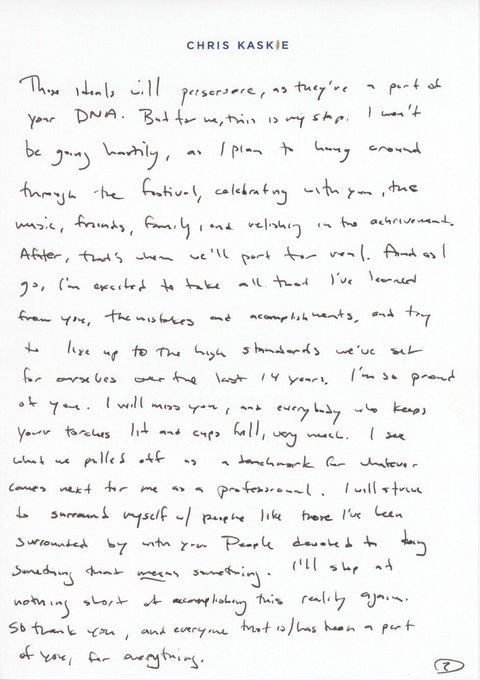 CHRIS KASKIE
Those ideals will persevere, as they're a part of
your DNA. But for me, this is my stop. I won't
be going hastily, as I plan to hang around
through the festival, celebrating with you, the
music, friends, family, and relishing in the achievement.
After, that's when we'll part for real. And as I
go, I'm excited to take all that I've learned
from you, the mistakes and accomplishments, and try
to live up to the high standards we've set
for ourselves over the last 14 years. I'm so proud
of you. I will miss you, and everybody who keeps
your torches lit and cups full, very much. I see
what we pulled off as a benchmark for whatever
comes next for me as a professional. I will strive
to surround myself w/ people like those I've been
surrounded by with you. People devoted to doing
something that means something. I'll stop at
nothing short of accomplishing this reality again.
So thank you, and everyone that is/has been a part
of you, for everything.
2